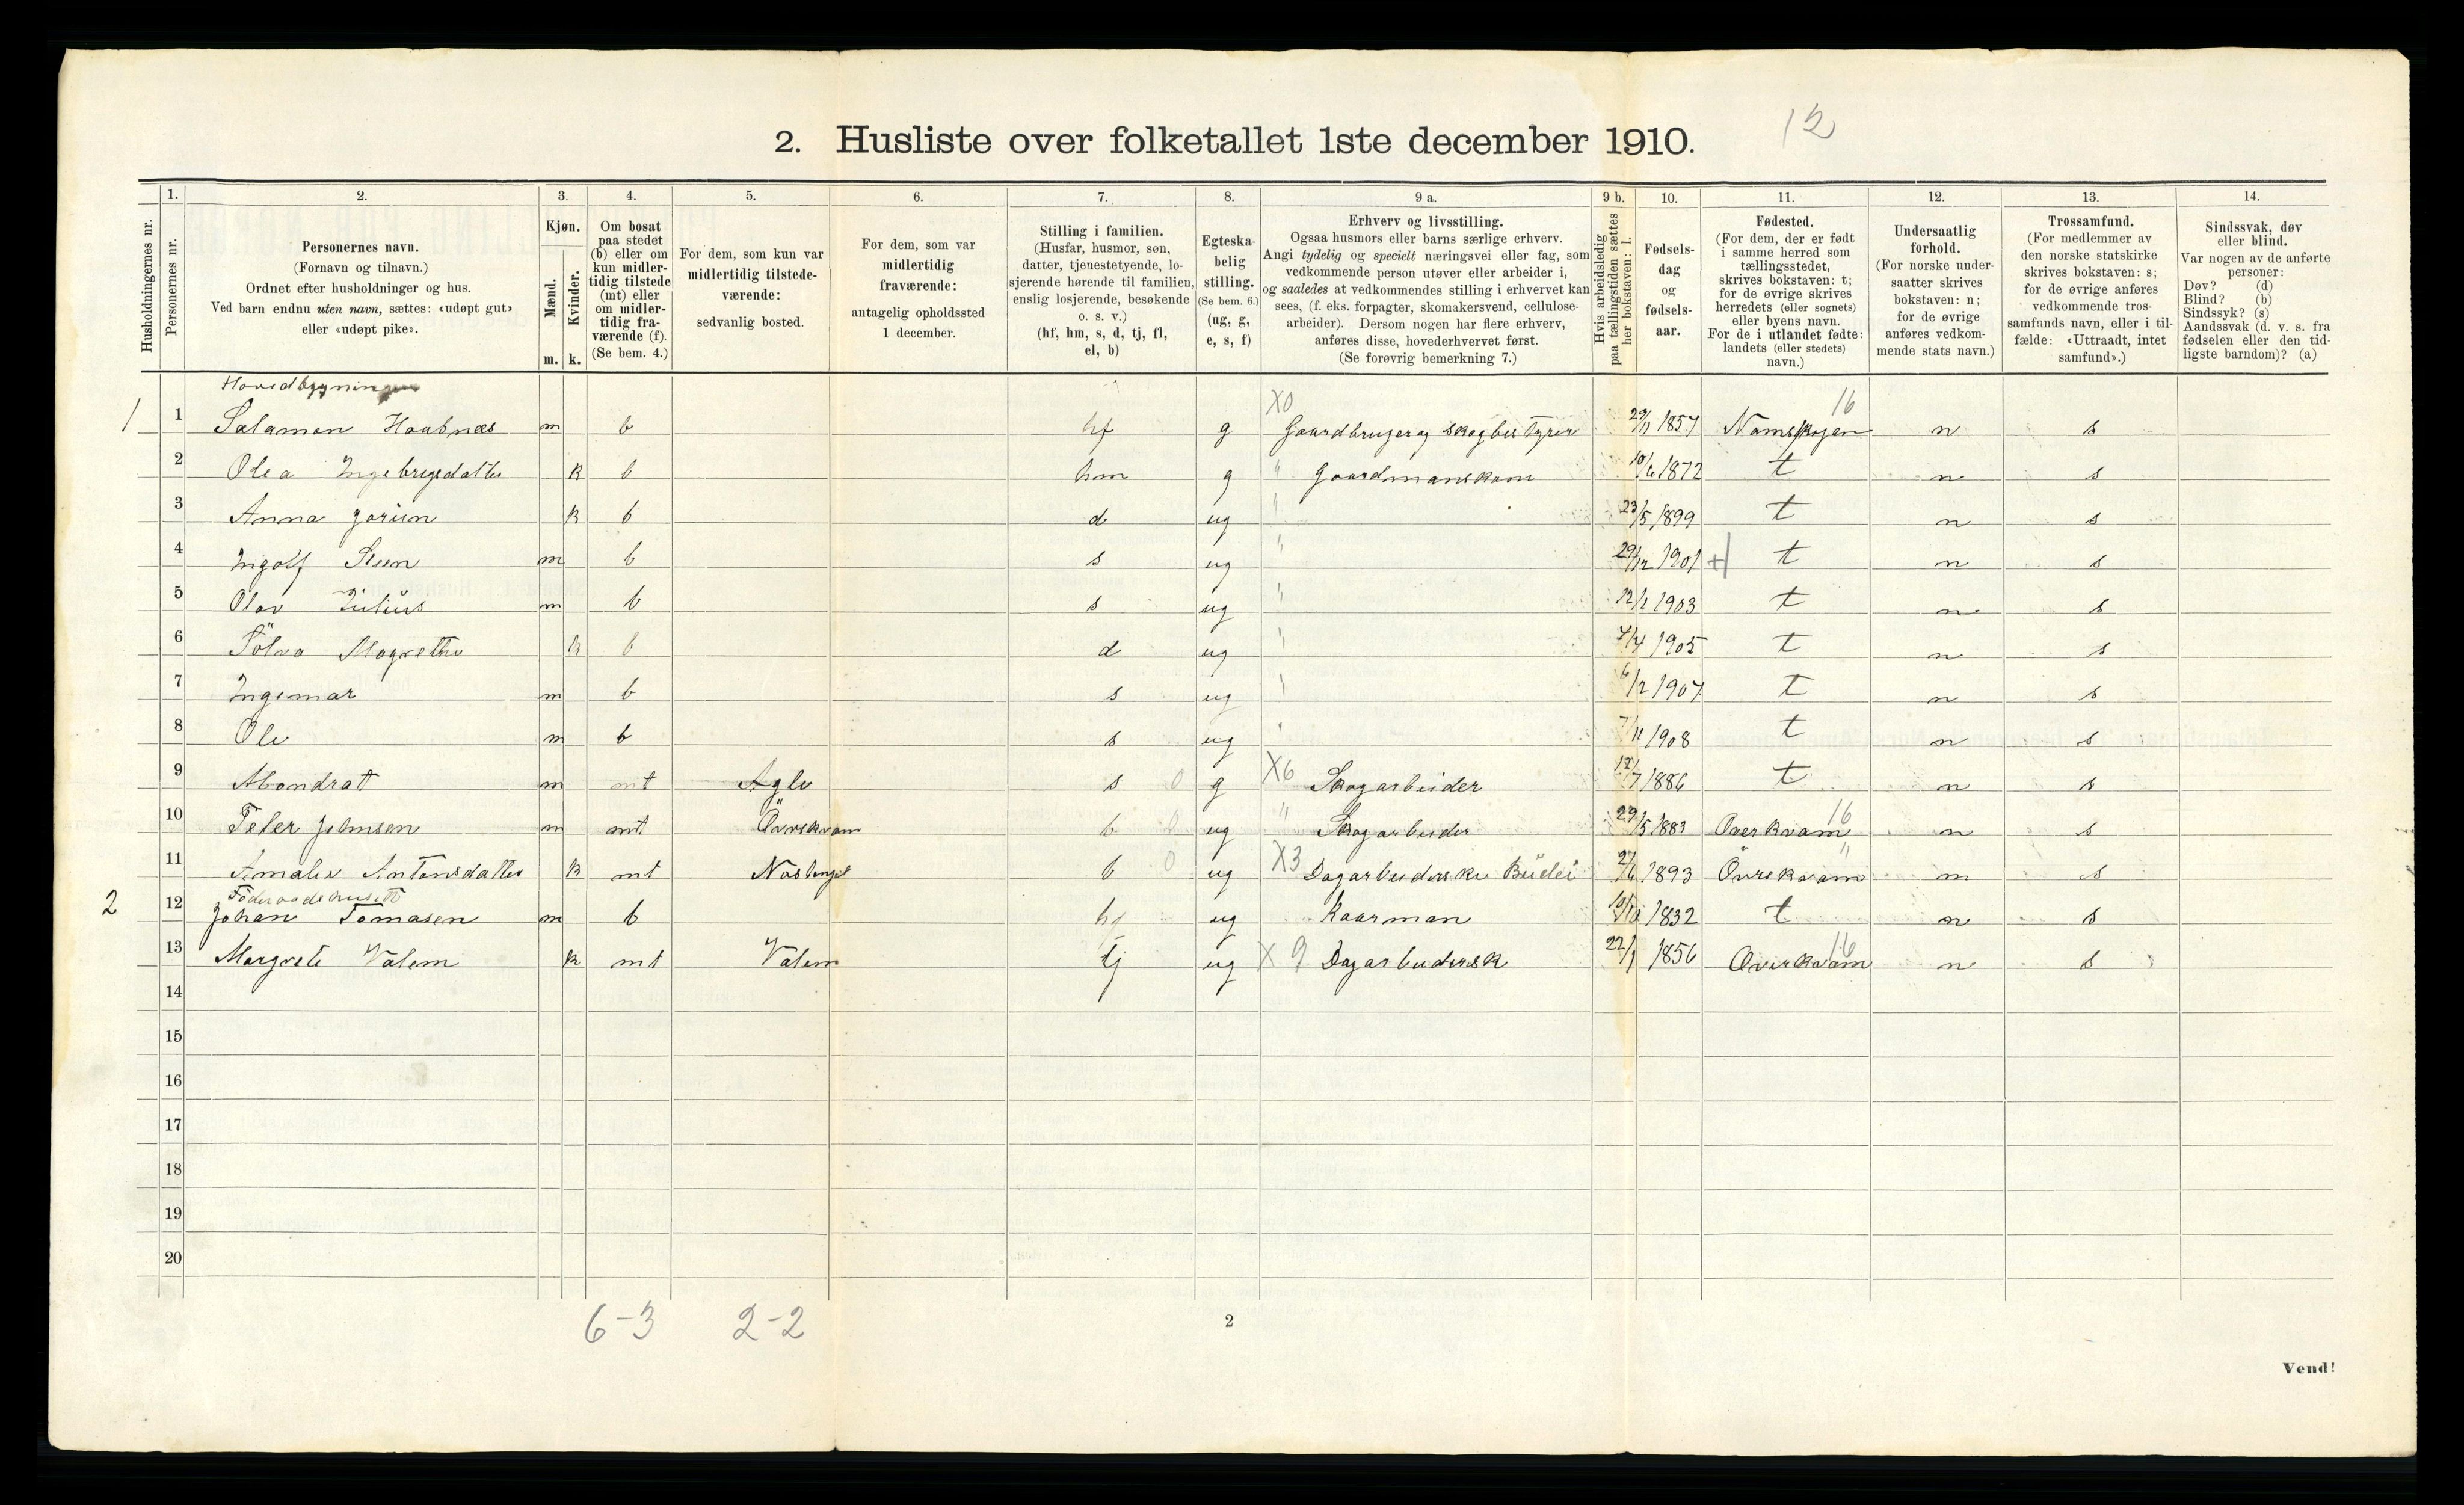 2. Husliste over folketallet 1ste december 1910. 12
1. 2. 3. 4. 5. 6. 7. 8. 9 a. 9 b. 10. 11. 12. 13. 14.
Husholdningernes nr.
Personernes nr.
Personernes navn.
(Fornavn og tilnavn.)
Ordnet efter husholdninger og hus.
Ved barn endnu uten navn, sættes: «udøpt gut»
eller «udøpt pike».
Kjøn.
Mænd.
Kvinder.
m. k.
Om bosat
paa stedet
(b) eller om
kun midler-
tidig tilstede
(mt) eller
om midler-
tidig fra-
værende (f).
(Se bem. 4.)
For dem, som kun var
midlertidig tilstede-
værende:
sedvanlig bosted.
For dem, som var
midlertidig
fraværende:
antagelig opholdssted
1 december.
Stilling i familien.
(Husfar, husmor, søn,
datter, tjenestetyende, lo-
sjerende hørende til familien,
enslig losjerende, besøkende
o. s. v.)
(hf, hm, s, d, tj, fl,
el, b)
Egteska-
belig
stilling.
(Se bem. 6.)
(ug, g,
e, s, f)
Erhverv og livsstilling.
Ogsaa husmors eller barns særlige erhverv.
Angi tydelig og specielt næringsvei eller fag, som
vedkommende person utøver eller arbeider i,
og saaledes at vedkommendes stilling i erhvervet kan
sees, (f. eks. forpagter, skomakersvend, cellulose-
arbeider). Dersom nogen har flere erhverv,
anføres disse, hovederhvervet først.
(Se forøvrig bemerkning 7.)
Hvis arbeidsledig
paa tællingstiden sættes
her bokstaven: l.
Fødsels-
dag
og
fødsels-
aar.
Fødested.
(For dem, der er født
i samme herred som
tællingsstedet,
skrives bokstaven: t;
for de øvrige skrives
herredets (eller sognets)
eller byens navn.
For de i utlandet fødte:
landets (eller stedets)
navn.)
Undersaatlig
forhold.
(For norske under-
saatter skrives
bokstaven: n;
for de øvrige
anføres vedkom-
mende stats navn.)
Trossamfund.
(For medlemmer av
den norske statskirke
skrives bokstaven: s;
for de øvrige anføres
vedkommende tros-
samfunds navn, eller i til-
fælde: «Uttraadt, intet
samfund».)
Sindssvak, døv
eller blind.
Var nogen av de anførte
personer:
Døv? (d)
Blind? (b)
Sindssyk? (s)
Aandssvak (d. v. s. fra
fødselen eller den tid-
ligste barndom)? (a)
Hovedbygningen
X0 16
1 1 Salamon Haabnæs m b hf g Gaardbruger og skogbestyrer 29/11 1857 Namsskogen n s
2 Olea Ingebrigsdatter k b hm g " Gaardmanskone 10/6 1872 t n s
3 Anna Jorun k b d ug " 23/5 1899 t n s
4 Ingolf Steen m b s ug " 29/12 1901 + t n s
5 Olav Julius m b s ug " 12/2 1903 t n s
6 Sölva Magrethe k b d ug " 4/4 1905 t n s
7 Ingemar m b s ug " 6/2 1907 t n s
8 Ole m b s ug " 7/11 1908 t n s
9 m mt Agle s 0 g X6 Skogarbeider 12/7 1886 t n s
10 Peter Johnsen m mt Övrekvam b 0 ug " Skogarbeider 29/5 1883 Overkvam 16 n s
11 Amalie Antonsdatter k mt b 0 ug X3 Dagarbeiderske Büdei 27/6 1893 Övrekvam " n s
Föderaadehuset
2 12 Johan Tomasen m b hf ug Kaarman 1832 t n s
13 Margrete Valem k mt Valem tj ug X 9 Dagarbeidersk 22/1 1856 Overkvam 16 n s
14
15
16
17
18
19
20
6-3 2-2
2
Vend!